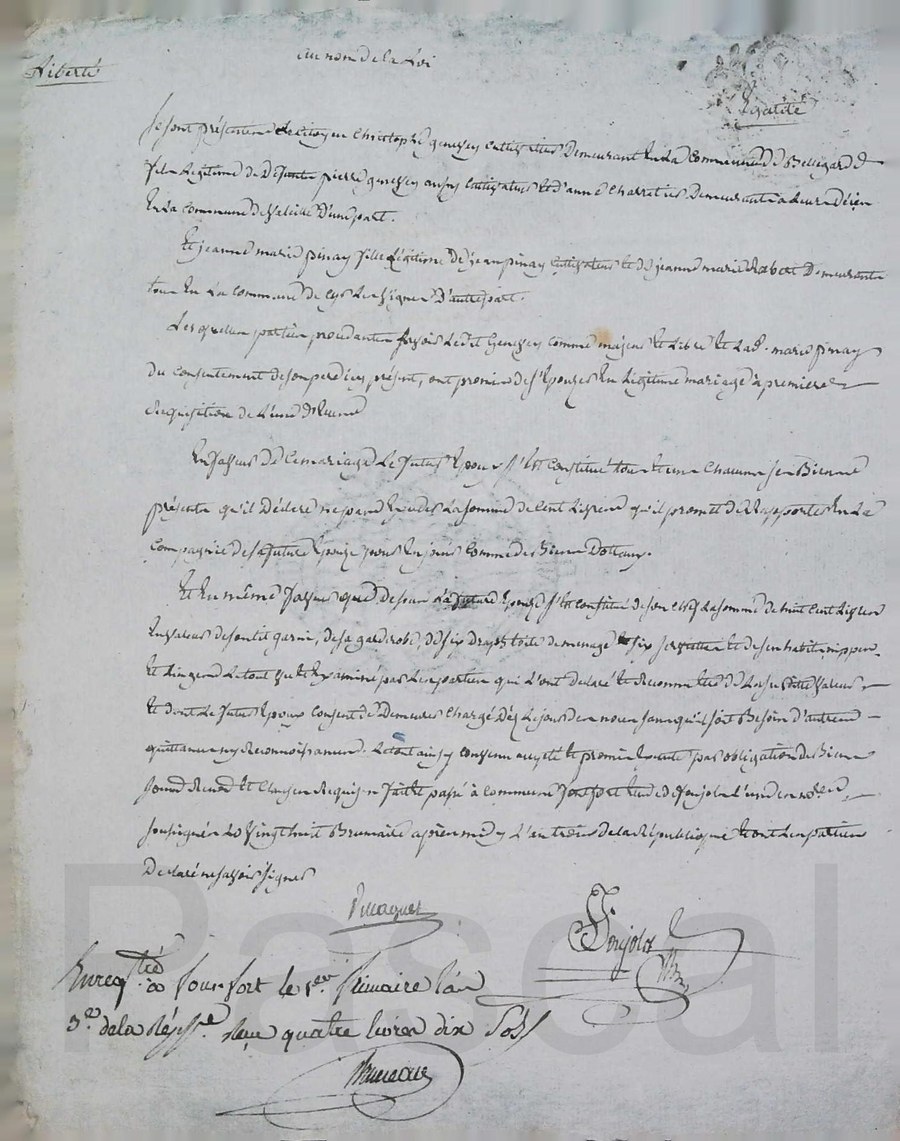 au nom de la Loi
Liberté
Egalité
Se sont présentés le citoyen Christophe genessey cultivateur Demeurant en La Commune de Bellegarde
fils Légitime de Defunts pierre genessey aussy Cultivateur et d'anne Charrat ies Demeurants à Leurs déces
En La Commune de d'une part.
Et jeanne marie pinay fille Légitime de jean pinay Cultivateur et de jeanne marie Rabat Demeurants
tous En La Commune de Les Vignes D'autre part.
Les quelles parties procedantes savoir Ledit Genessey comme majeur Et Libre Et Lad. marie pinay
du Consentement de son pere icy présent, ont promis de s'Epouzer En Légitime mariage à premiere
Requisition de L'une d'Eux
En faveur de Ce mariage Le futur Epoux s'est Constitué tous Et un Chacuns ses Biens
présents qu'il Déclare ne pas Exceder La somme de Cent Livres qu'il promet de Rapporter En La
Compagnie de sa future Epouze pour En jouir Comme des Biens Dotaux.
Et En même faveur que Dessus La future Epouze s'est Constitué de son Chef La somme de huit Cent Livres
En Valeur de son Lit garni, de sa garderobe, de six draps toile de menage six serviettes Et de ses habits nippes
Et Linges Le tout Vu Et Examiné par Les parties qui L'ont declaré Et Reconnu Etre de La juste Valeur
Et dont Le futur Epoux Consent de Demeurer Chargé Dès Le jour des noces sans qu'il soit Besoin d'autres
quittances ny Reconnoissances. Le tout ainsy Convenu accepté Et promis par obligation de Biens
Soumis Renon. Et Clauses Requises fait Et passé à Commune fort Etude de Sonjolot L'un des no.res
soussignés Le Vingt huit Brumaire après midy L'an trois de La République Et ont Les parties
Declaré ne savoir signer
Sonjolot
Enreg.tré à fort le 1.er frimaire l'an
3.e de la Rép.que Reçu quatre livres dix Sols
Pascal